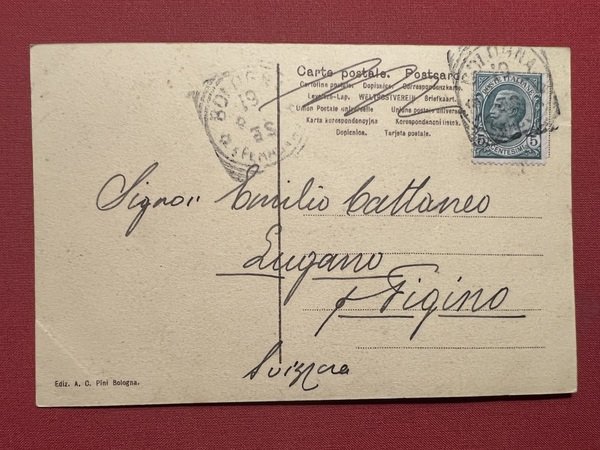 Carte postale. Postcard.
Cartolina postale. Dopisnica. Correspondenzkarte.
Levelezo-Lap. WELTPOSTVEREIN Briefkaart.
Union Postale universelle Unione postale universale
Karta korespondencyjna Korespondenční lístek.
Dopisnica. Tarjeta postale.
BOLOGNA
BOLOGNA
POSTE ITALIANE
5 CENTESIMI 5
Signor Emilio Cattaneo
Lugano
p Figino
Svizzera
Ediz. A. C. Pini Bologna.